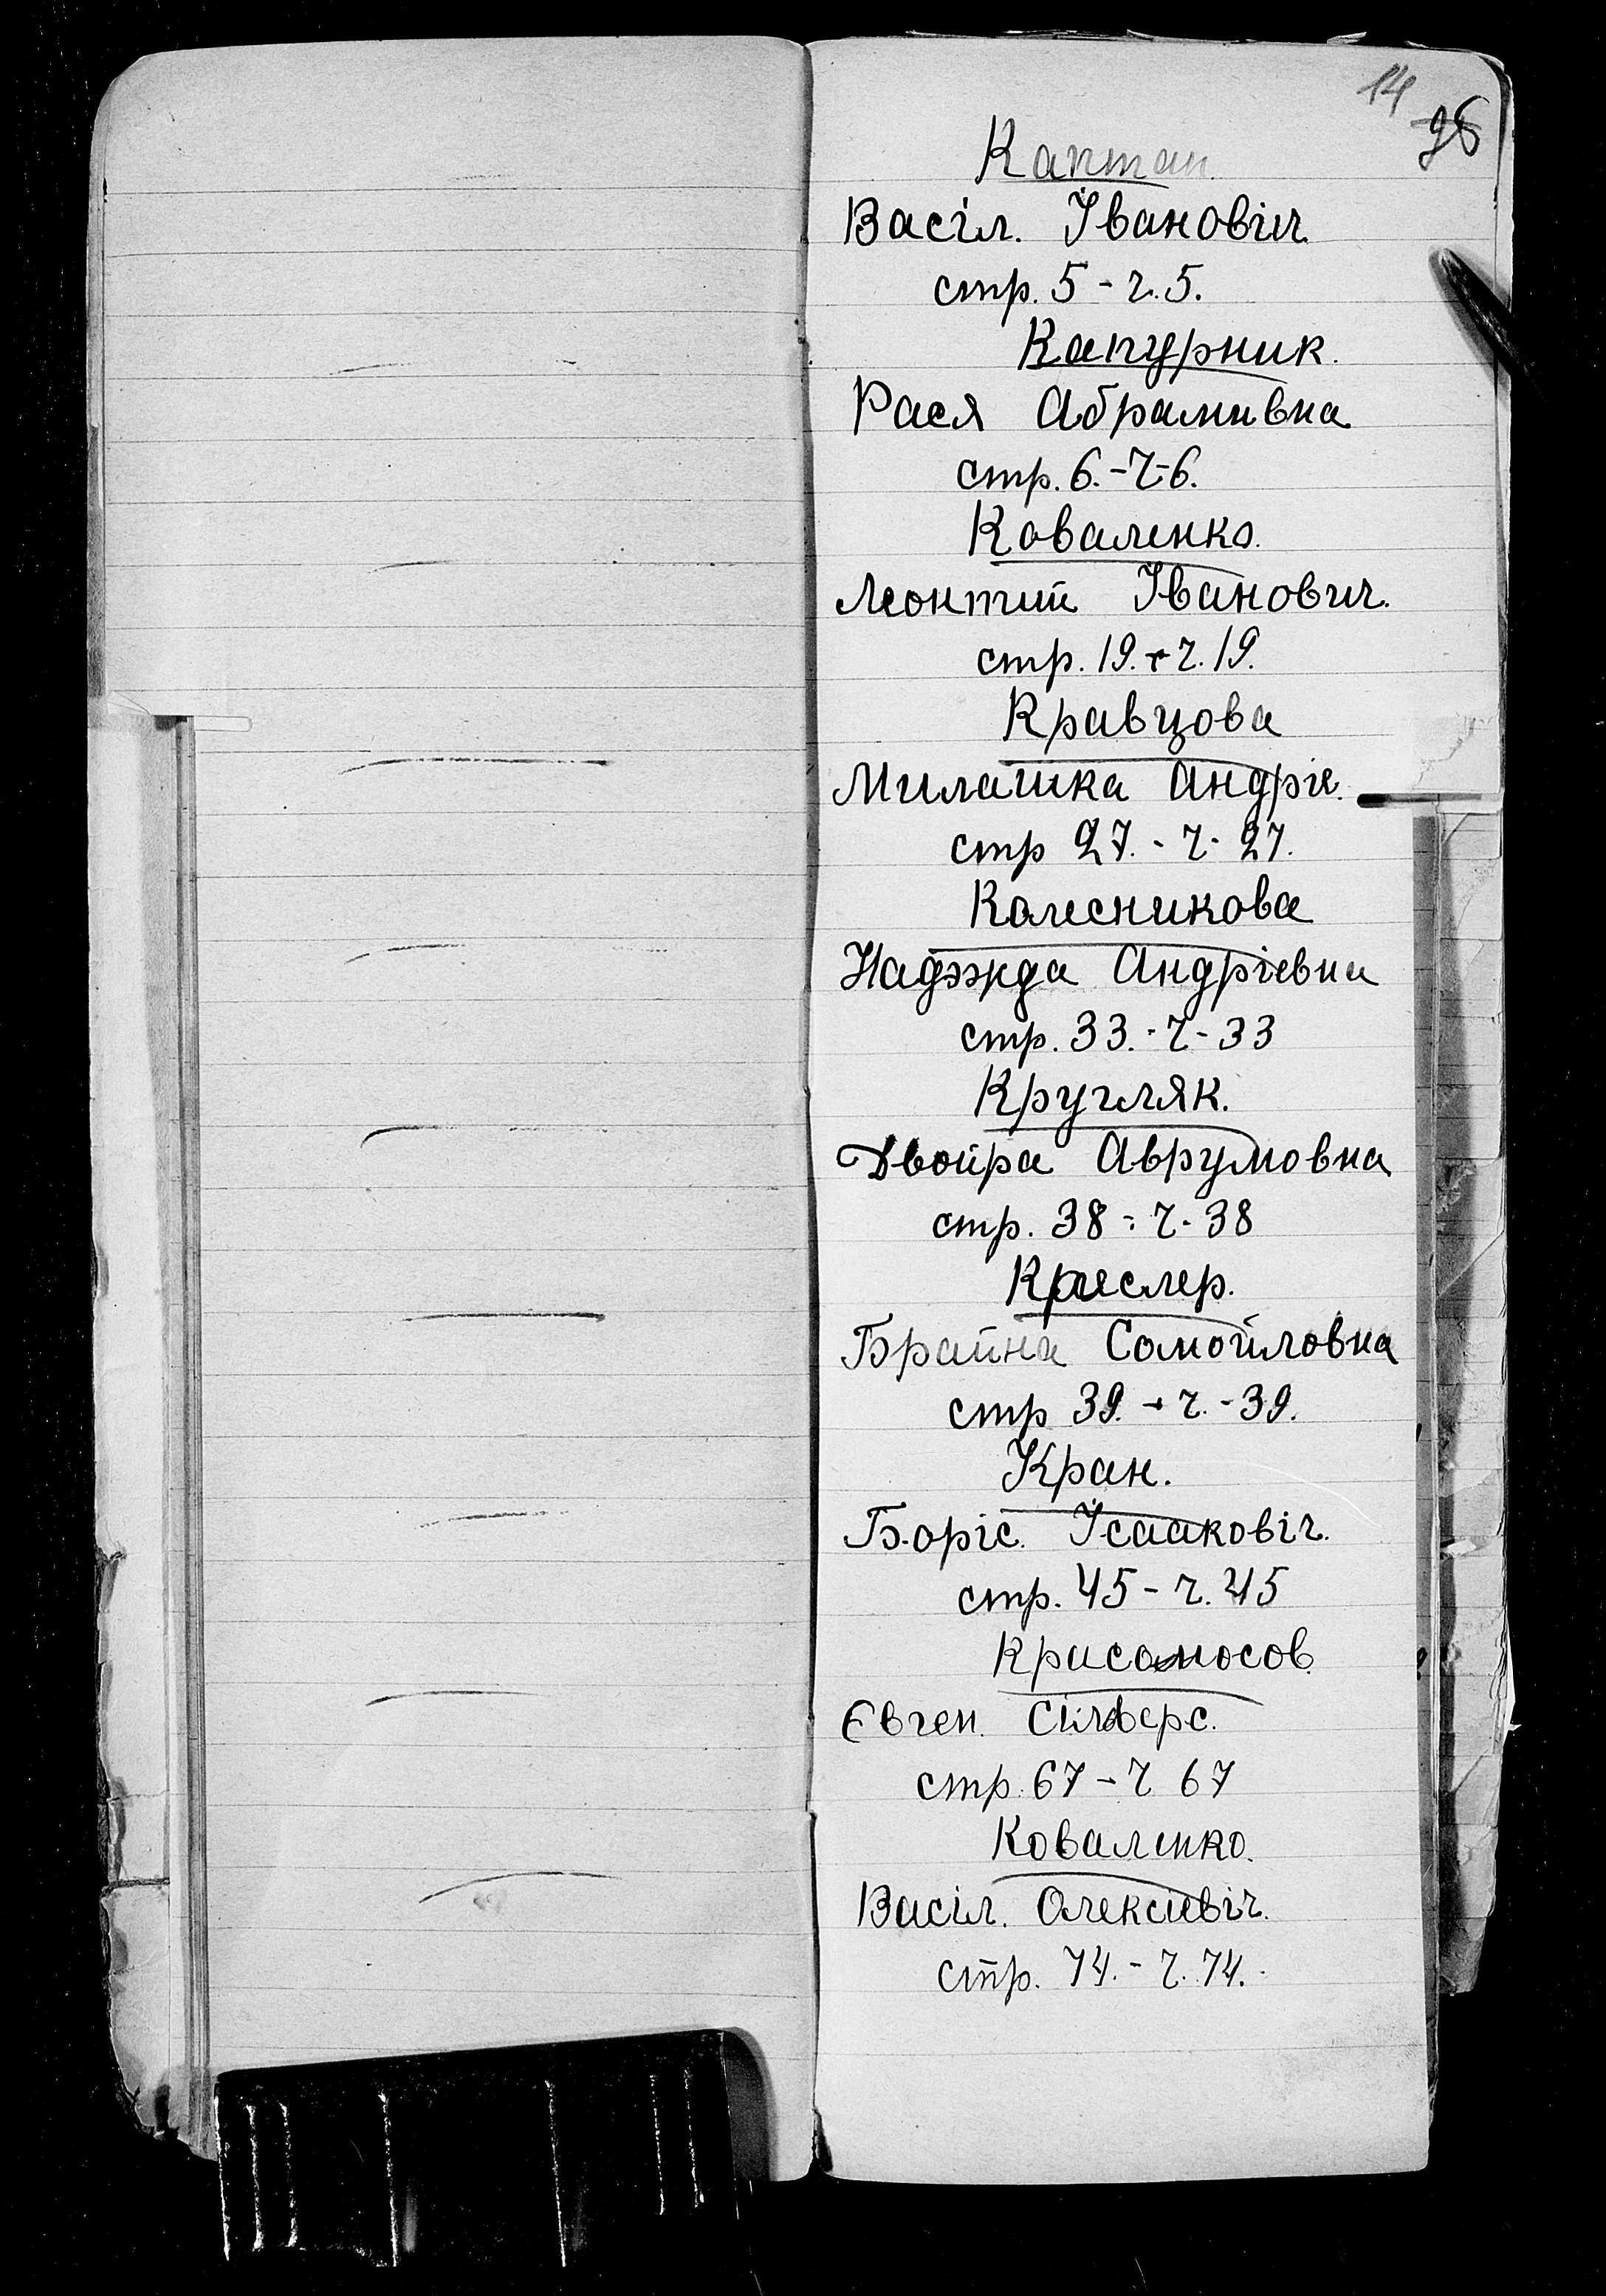 14
98
Каптан.
Васіл. Івановіч.
стр. 5 - ч. 5.
Капурник.
Рася Абрамивна
стр. 6. - ч-6.
Коваленко.
Леонтий Іванович.
стр. 19. - ч. 19.
Кравцова
Милашка Андріе.
стр 27. - ч- 27.
Колесникова
Надэжда Андріевна
стр. 33. - ч - 33
Кругляк.
Двойра Аврумовна
стр. 38 - ч - 38
Креслер.
Брайна Самойловна
стр 39. - ч. - 39.
Кран.
Боріс. Ісааковіч.
стр. 45 - ч. 45
Красоносов.
Євген.
стр. 67 - ч 67
Коваленко.
Васіл. Олексіевіч.
стр. 74. - ч. 74.